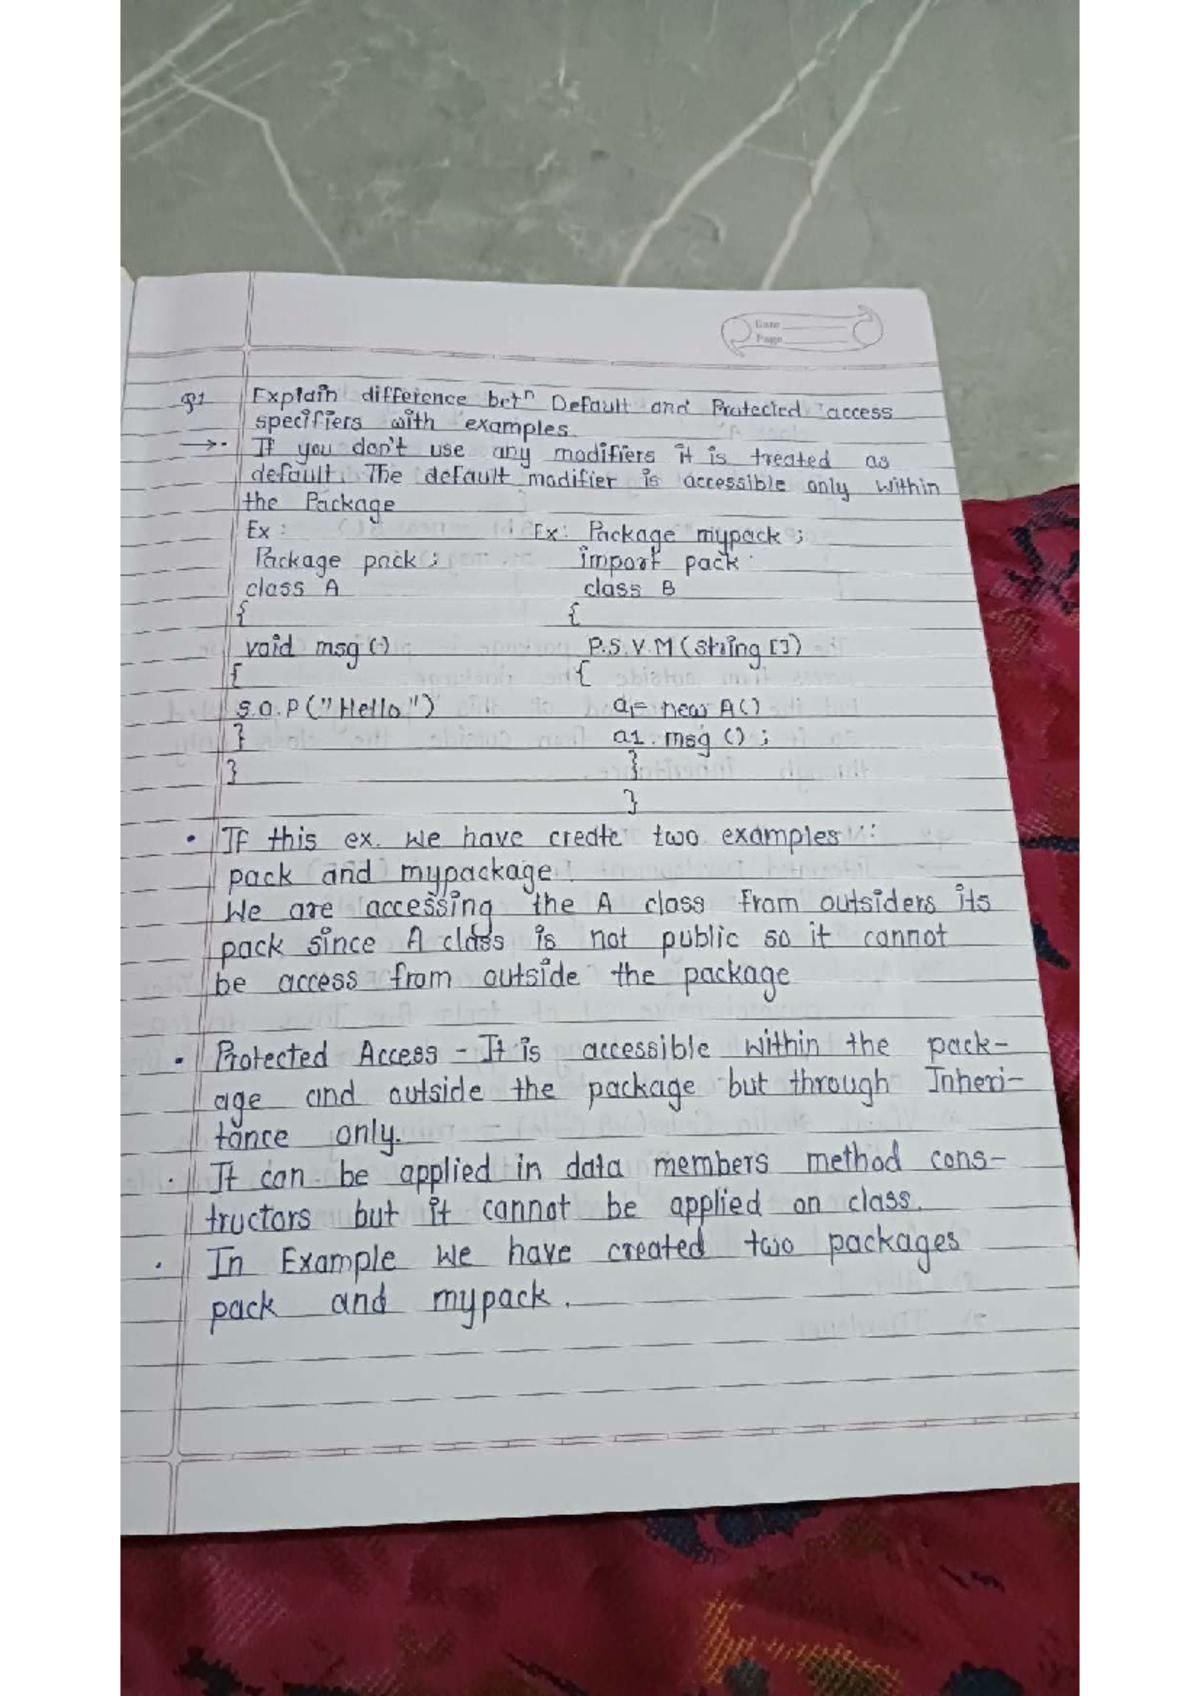 Date
Page
Q1 Explain difference betn Default and Protected access
specifiers with examples
→ • If you don't use any modifiers it is treated as
default. The default modifier is accessible only within
the Package
Ex : Ex: Package mypack ;
Package pack ; import pack
class A class B
{ {
void msg () P.S.V.M (string [])
{ {
S.O.P ("Hello") a1= new A()
} a1. msg () ;
} }
}
• If this ex. we have create two examples :
pack and mypackage.
We are accessing the A class from outsiders its
pack since A class is not public so it cannot
be access from outside the package
• Protected Access - It is accessible within the pack-
age and outside the package but through Inheri-
tance only.
• It can be applied in data members method cons-
tructors but it cannot be applied on class.
• In Example we have created two packages
pack and mypack.